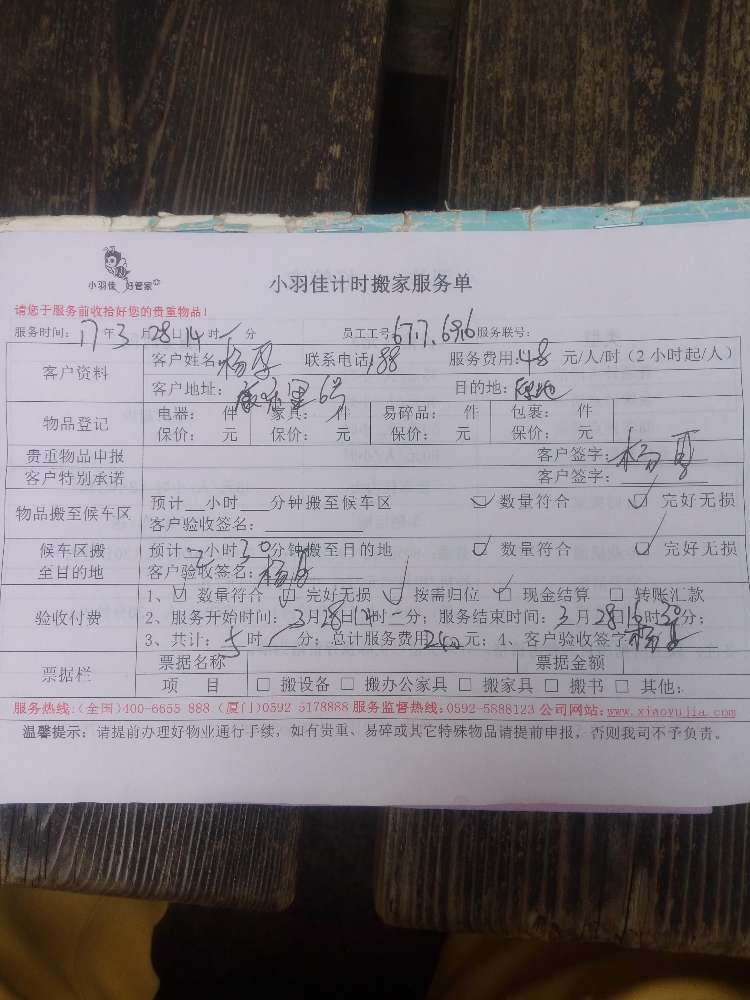 小羽佳 好管家
小羽佳计时搬家服务单
请您于服务前收拾好您的贵重物品！
服务时间：17年3月28日14时 分 员工工号677.696 服务联号：
客户资料 客户姓名：杨 联系电话：188 服务费用：48 元/人/时（2小时起/人）
客户地址： 里6号 目的地：
物品登记 电器： 件 家具： 件 易碎品： 件 包裹： 件
保价： 元 保价： 元 保价： 元 保价： 元
贵重物品申报 客户签字：杨
客户特别承诺 客户签字：
物品搬至候车区 预计__小时__分钟搬至候车区 ☑ 数量符合 ☑ 完好无损
客户验收签名：
候车区搬至目的地 预计二小时30分钟搬至目的地 ☑ 数量符合 ☑ 完好无损
客户验收签名：杨
验收付费 1、☑ 数量符合 ☑ 完好无损 ☑ 按需归位 ☑ 现金结算 □ 转账汇款
2、服务开始时间：3月28日14时 分；服务结束时间：3月28日16时30分；
3、共计：5时 分；总计服务费用240元；4、客户验收签字：杨
票据栏 票据名称 票据金额
项 目 □ 搬设备 □ 搬办公家具 □ 搬家具 □ 搬书 □ 其他：
服务热线：(全国)400-6655 888 (厦门)0592 5178888 服务监督热线：0592-5888123 公司网站：www.xiaoyujia.com
温馨提示：请提前办理好物业通行手续，如有贵重、易碎或其它特殊物品请提前申报，否则我司不予负责。